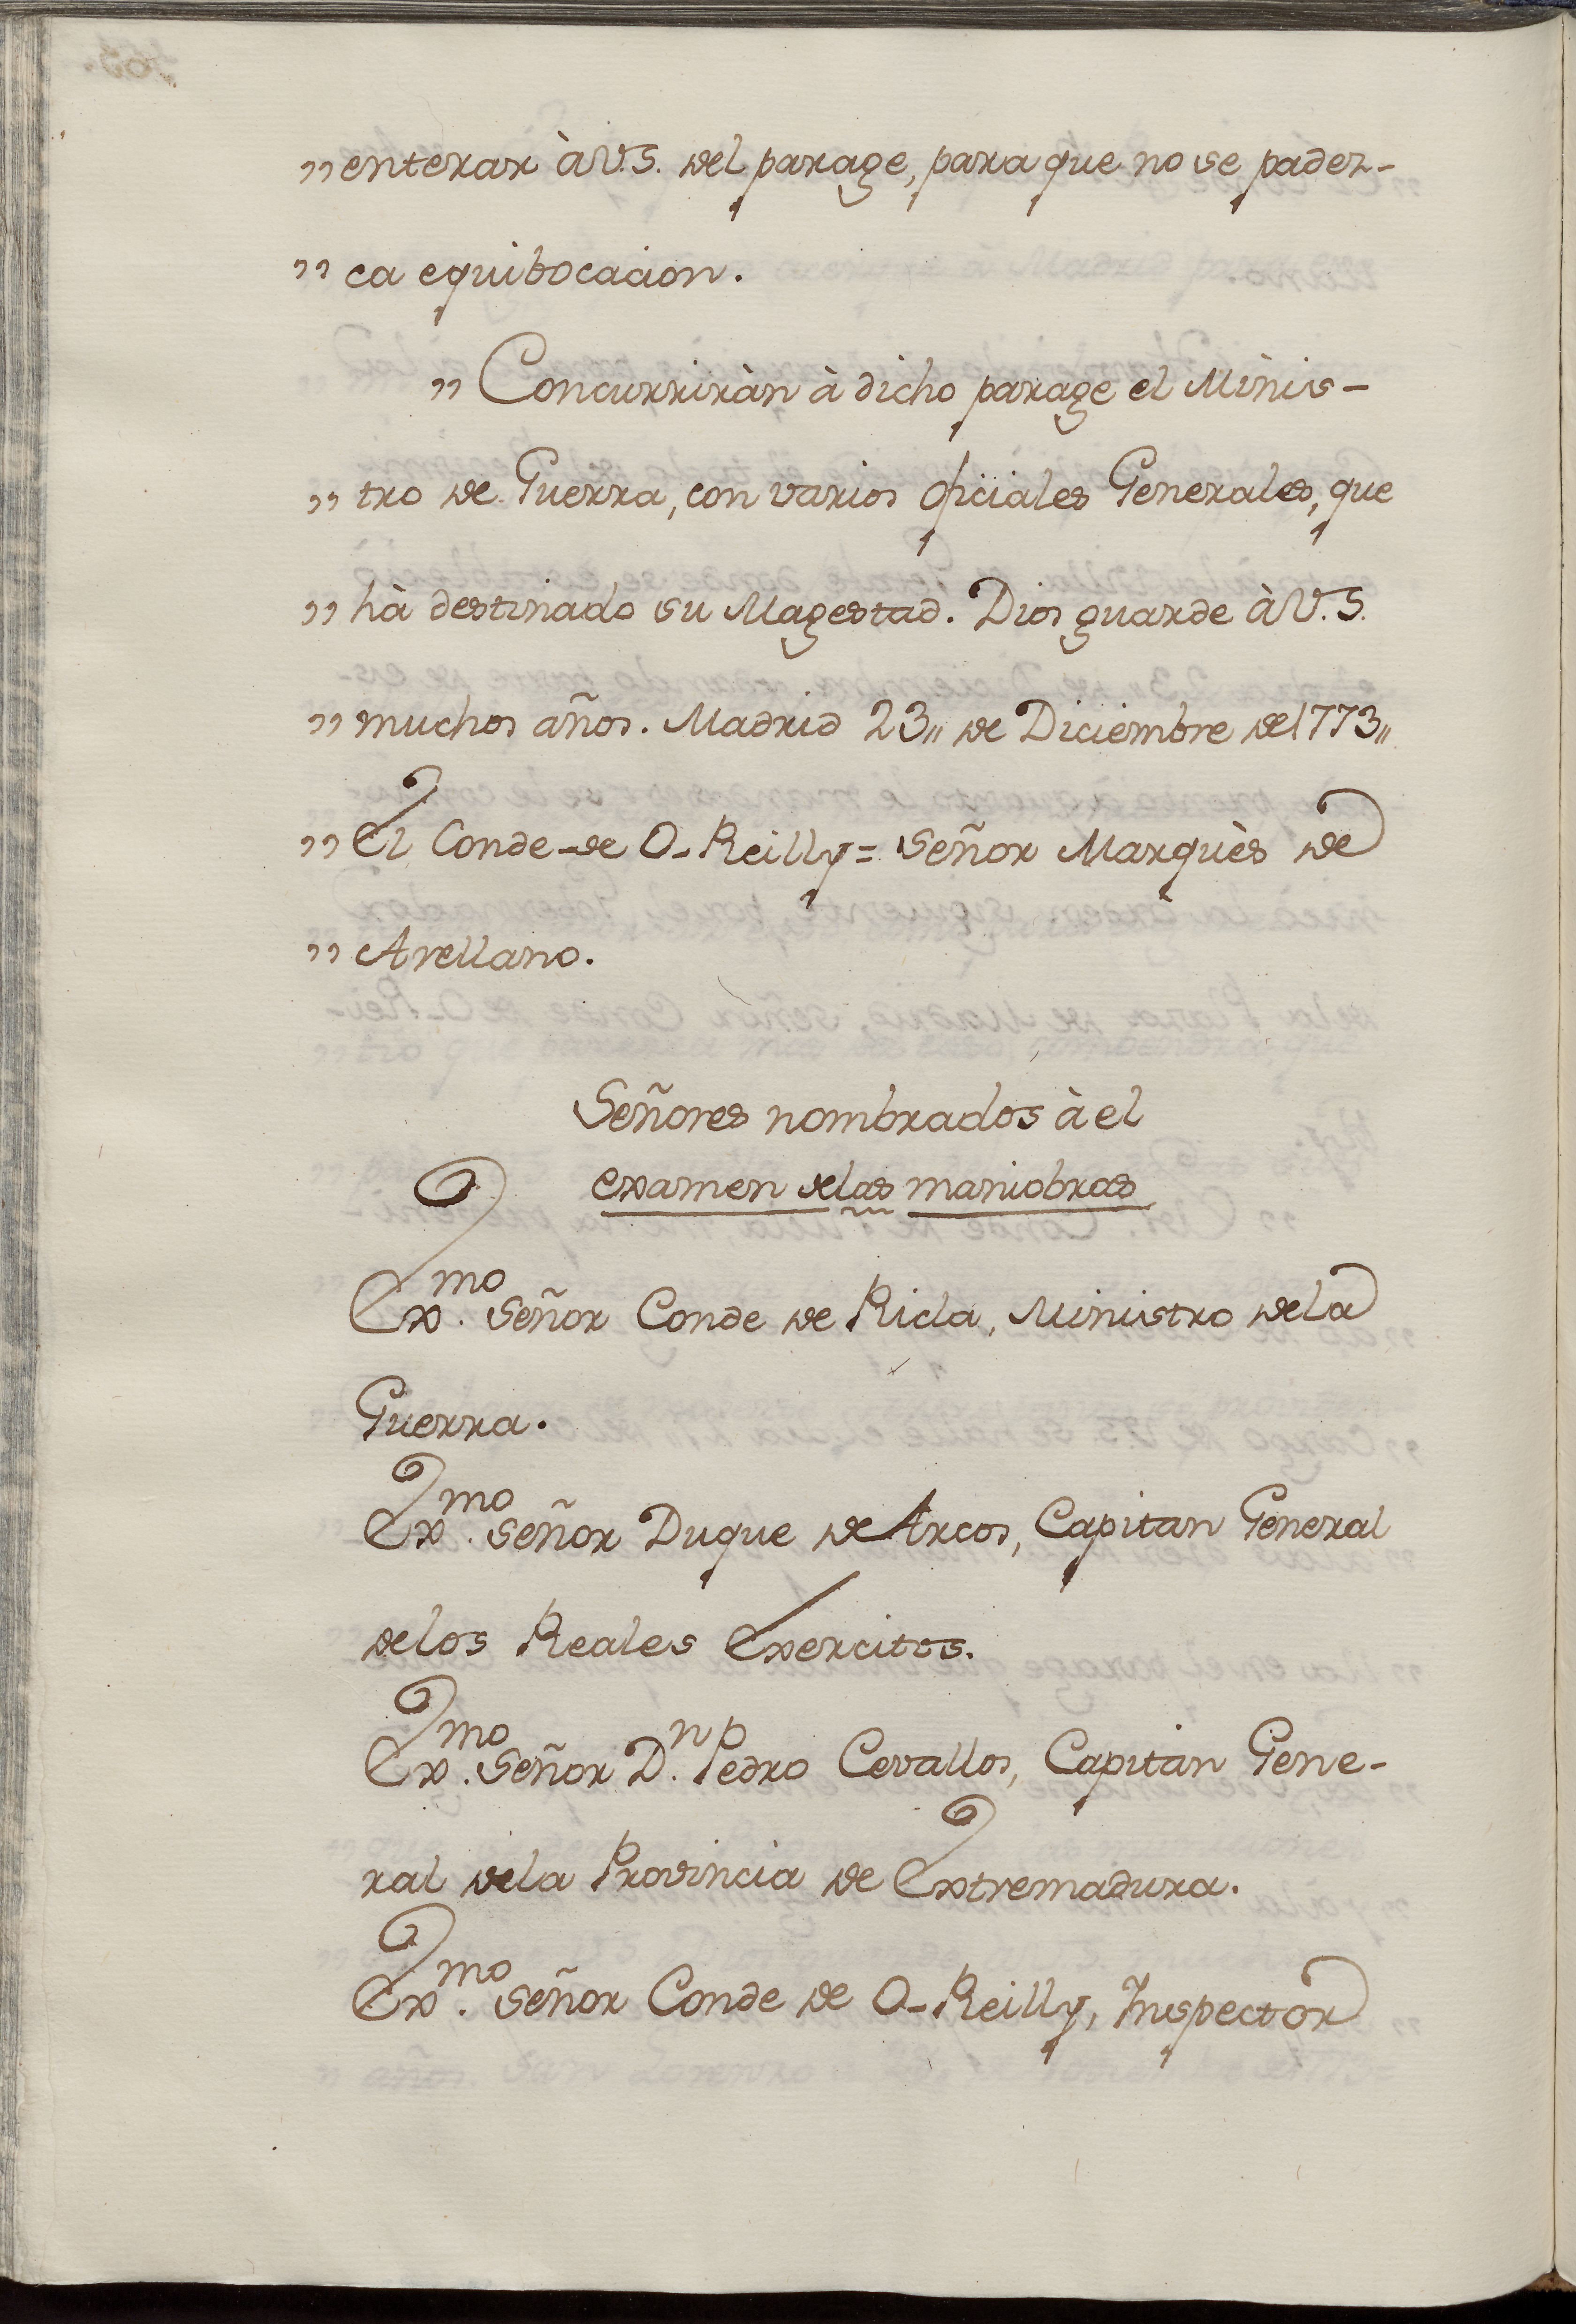 „ enterar à V.S. del parage, para que no se padez-
„ ca equibocacion.
„ Concurriràn à dicho parage el Minis-
„ tro de Guerra, con varios oficiales Generales, que
„ hà destinado su Magestad. Dios guarde à V.S.
„ muchos años. Madrid 23,, de Diciembre de 1773,,
„ El Conde-de O-Reilly = Señor Marquès de
„ Arellano.
Señores nombrados à el
examen delas maniobras
Exmo. Señor Conde de Ricla, Ministro dela
Guerra.
Exmo. Señor Duque de Arcos, Capitan General
delos Reales Exercitos.
Exmo. Señor Dn. Pedro Cevallos, Capitan Gene-
ral dela Provincia de Extremadura.
Exmo. Señor Conde de O-Reilly, Inspector